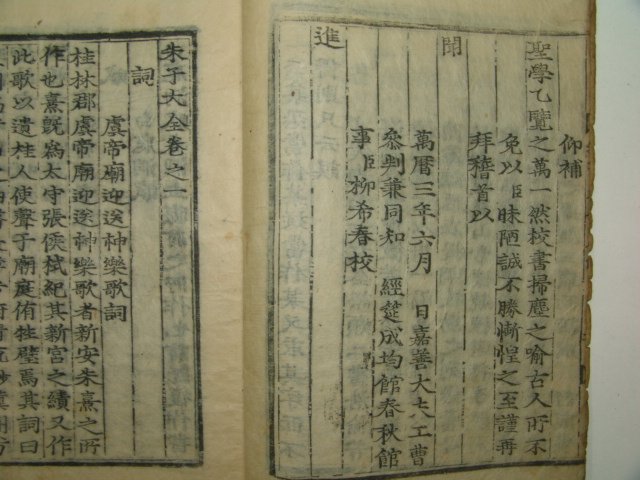 仰補
聖學乙覽之萬一然校書掃塵之喻古人所不
免以臣昧陋誠不勝慚惶之至謹再
拜稽首以
聞
萬曆三年六月 日嘉善大夫工曹
叅判兼同知 經筵成均館春秋館
事臣柳希春校
進
朱子大全卷之一
詞
虞帝廟迎送神樂歌詞
桂林郡虞帝廟迎送神樂歌者新安朱熹之所
作也熹既爲太守張侯栻紀其新宮之績又作
此歌以遺桂人使聲于廟庭侑牲璧焉其詞曰